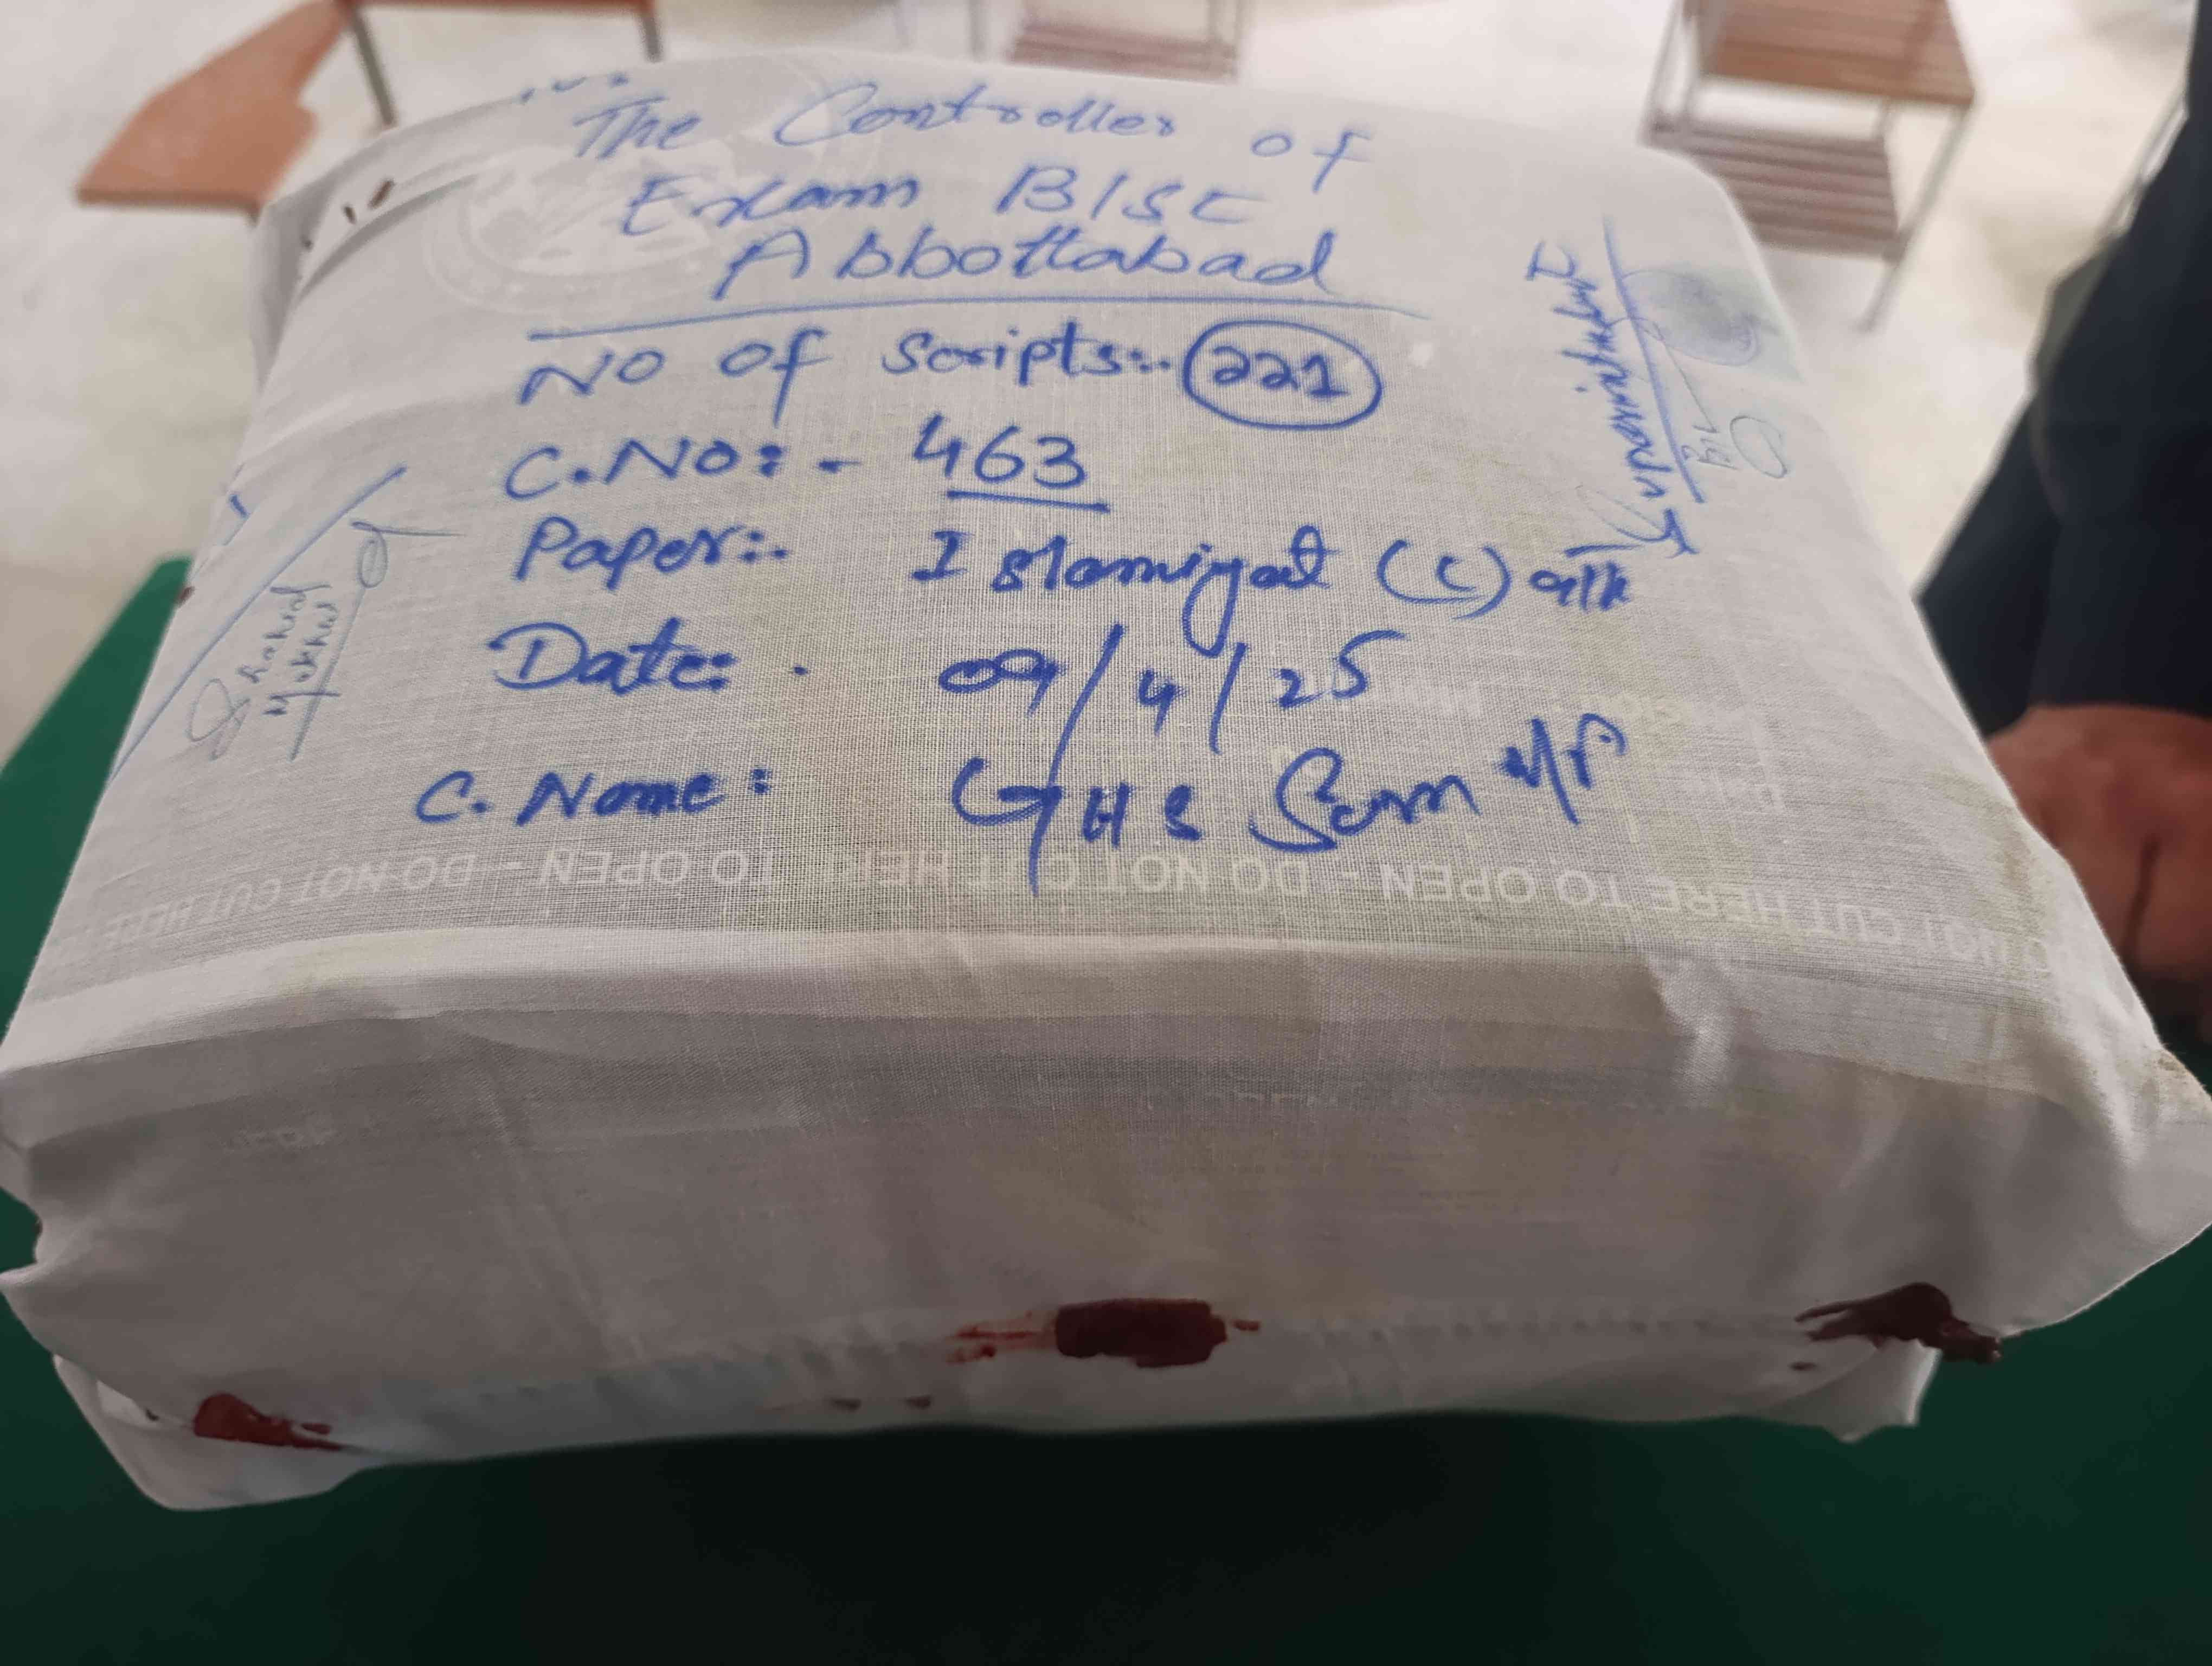 The Controller of
Exam BISE
Abbottabad
No of Scripts:- 221
C.No:- 463
Paper:- Islamiyat (C) 9th
Date:- 09/4/25
C. Name: GHS Sarn
Superintendent
Shahid
DO NOT CUT HERE TO OPEN - DO NOT CUT HERE TO OPEN - DO NOT CUT HERE